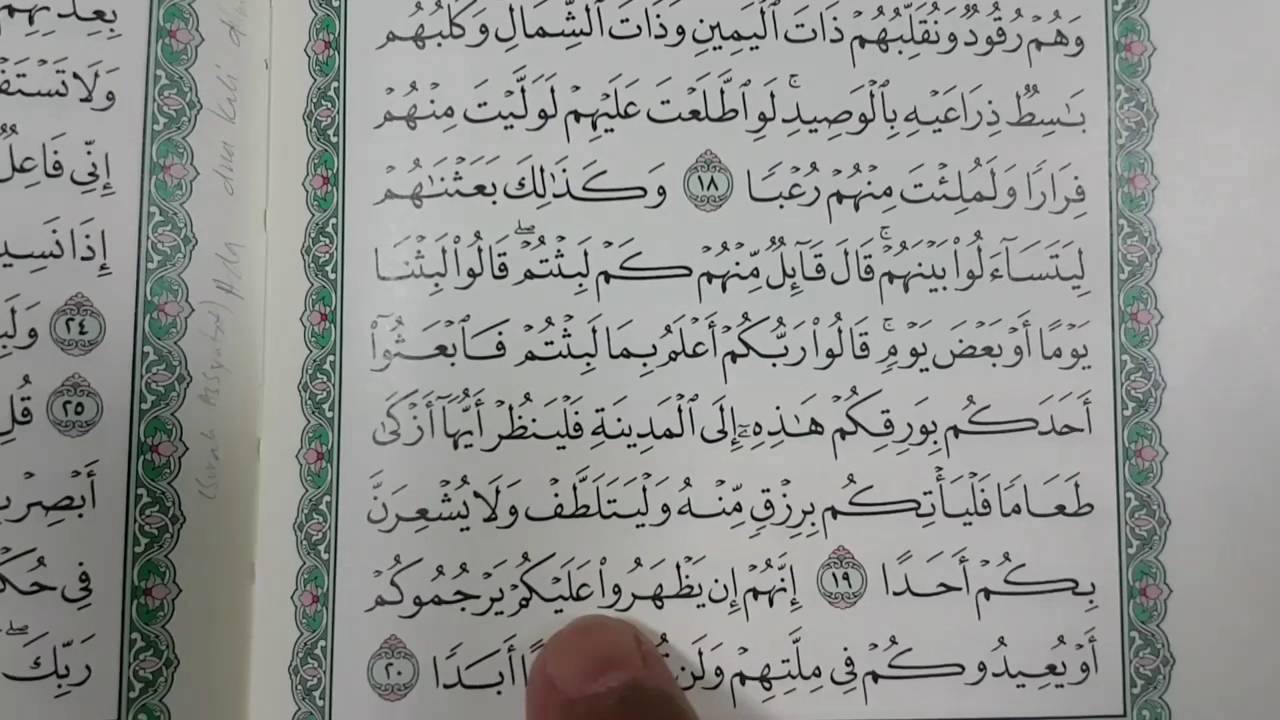 وَهُمْ رُقُودٌ وَنُقَلِّبُهُمْ ذَاتَ ٱلْيَمِينِ وَذَاتَ ٱلشِّمَالِ وَكَلْبُهُم
بَٰسِطٌ ذِرَاعَيْهِ بِٱلْوَصِيدِ ۚ لَوِ ٱطَّلَعْتَ عَلَيْهِمْ لَوَلَّيْتَ مِنْهُمْ
فِرَارًا وَلَمُلِئْتَ مِنْهُمْ رُعْبًا ١٨ وَكَذَٰلِكَ بَعَثْنَٰهُمْ
لِيَتَسَآءَلُوا۟ بَيْنَهُمْ ۚ قَالَ قَآئِلٌ مِّنْهُمْ كَمْ لَبِثْتُمْ ۖ قَالُوا۟ لَبِثْنَا
يَوْمًا أَوْ بَعْضَ يَوْمٍ ۚ قَالُوا۟ رَبُّكُمْ أَعْلَمُ بِمَا لَبِثْتُمْ فَٱبْعَثُوٓا۟
أَحَدَكُم بِوَرِقِكُمْ هَٰذِهِۦٓ إِلَى ٱلْمَدِينَةِ فَلْيَنظُرْ أَيُّهَآ أَزْكَىٰ
طَعَامًا فَلْيَأْتِكُم بِرِزْقٍ مِّنْهُ وَلْيَتَلَطَّفْ وَلَا يُشْعِرَنَّ
بِكُمْ أَحَدًا ١٩ إِنَّهُمْ إِن يَظْهَرُوا۟ عَلَيْكُمْ يَرْجُمُوكُمْ
أَوْ يُعِيدُوكُمْ فِى مِلَّتِهِمْ وَلَن أَبَدًا ٢٠
وَلَا
إِنِّى فَاعِلٌ
إِذَا
٢٤
٢٥ قُلِ
أَبْصِرْ
فِى
رَبِّكَ
dua kali